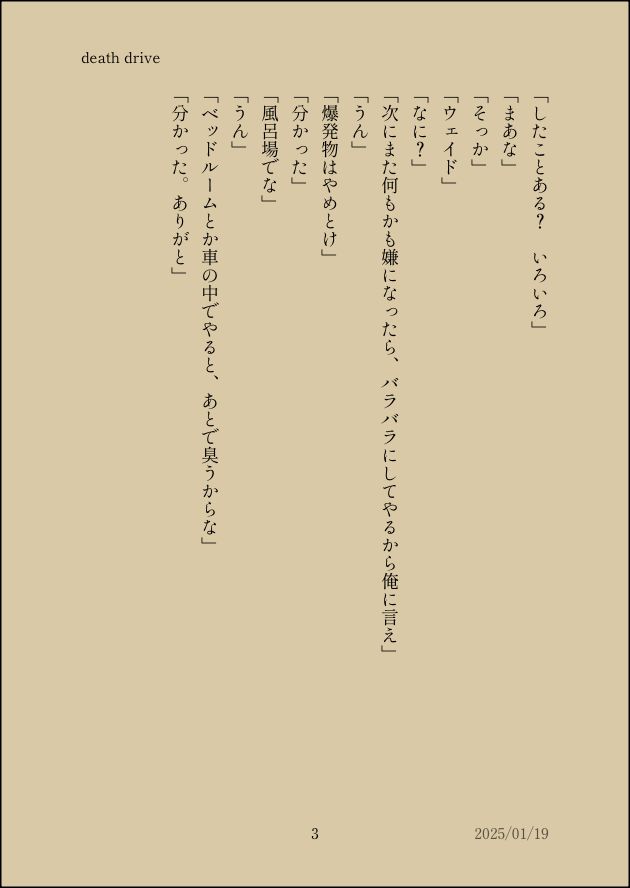 death drive
「したことある？　いろいろ」
「まあな」
「そっか」
「ウェイド」
「なに？」
「次にまた何もかも嫌になったら、バラバラにしてやるから俺に言え」
「うん」
「爆発物はやめとけ」
「分かった」
「風呂場でな」
「うん」
「ベッドルームとか車の中でやると、あとで臭うからな」
「分かった。ありがと」
3
2025/01/19